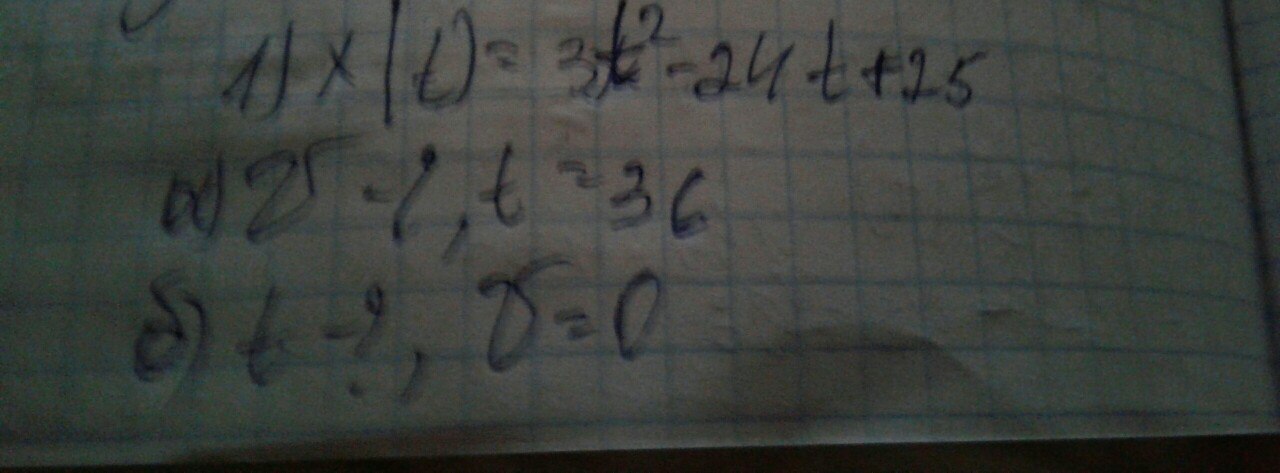 1) x(t) = 3t² - 24t + 25
а) v - ?, t = 3с
б) t - ?, v = 0